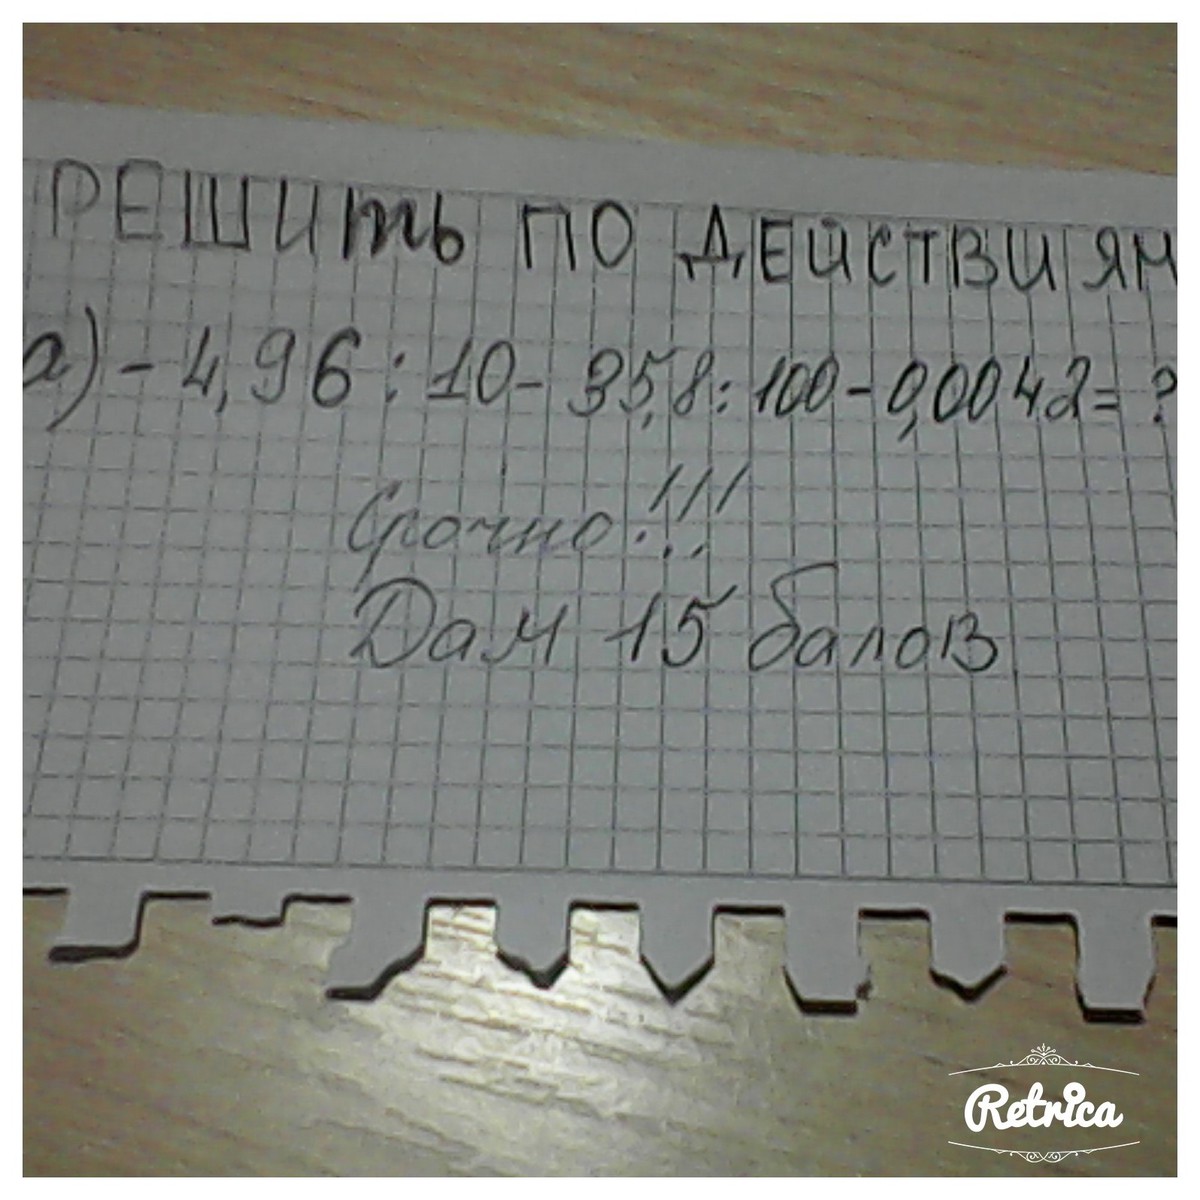 РЕШИть ПО ДЕЙСТВИЯМ
а) - 4,96 : 10 - 35,8 : 100 - 0,0042 = ?
Срочно!!!
Дам 15 балов
Retrica